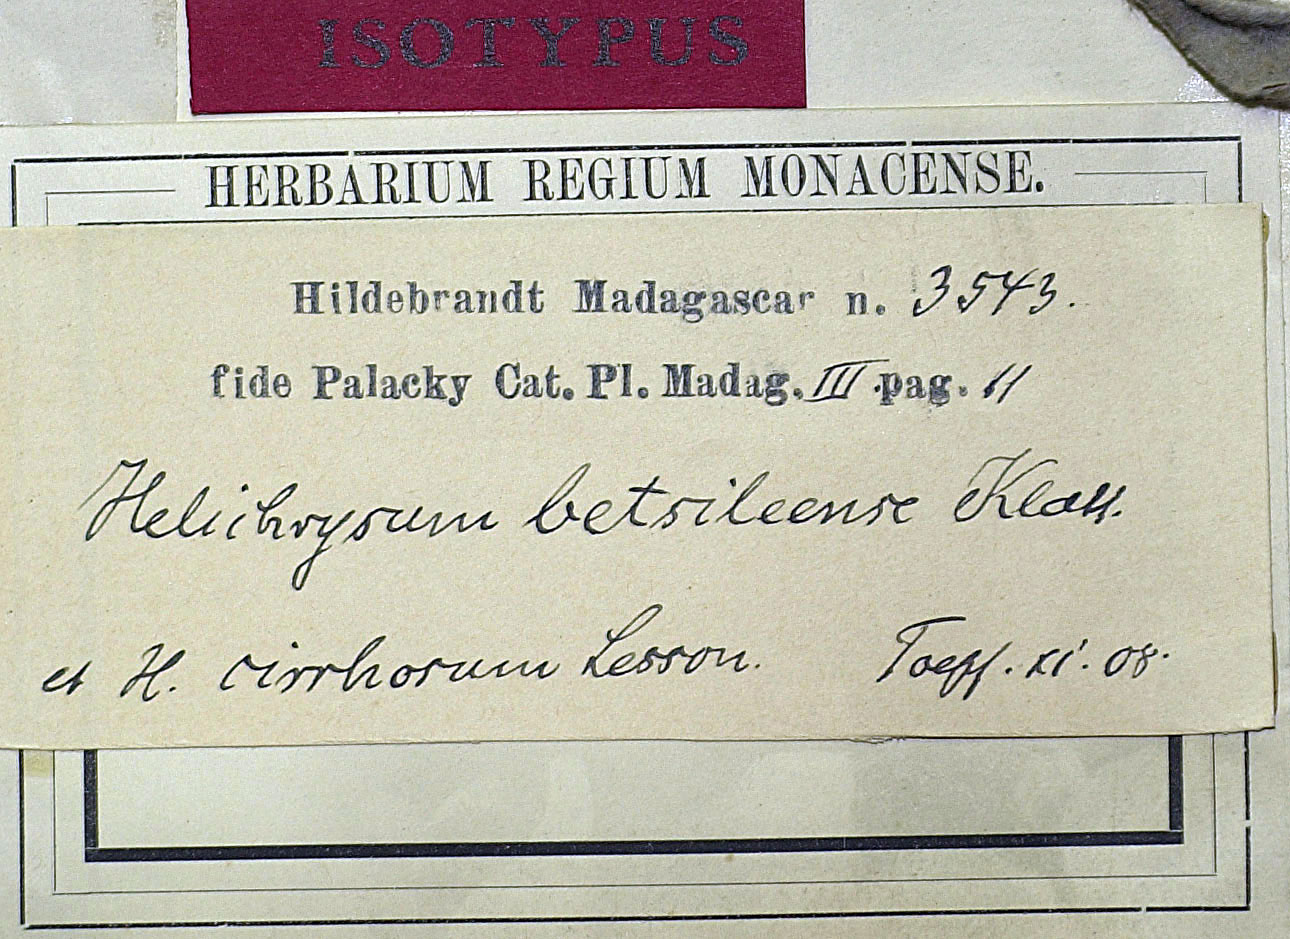 ISOTYPUS
HERBARIUM REGIUM MONACENSE.
Hildebrandt Madagascar n. 3543.
fide Palacky Cat. Pl. Madag. III. pag. 11
Helichrysum betsileense Klatt.
et H. cirrhosum Lesson. Toepf. xi. 08.